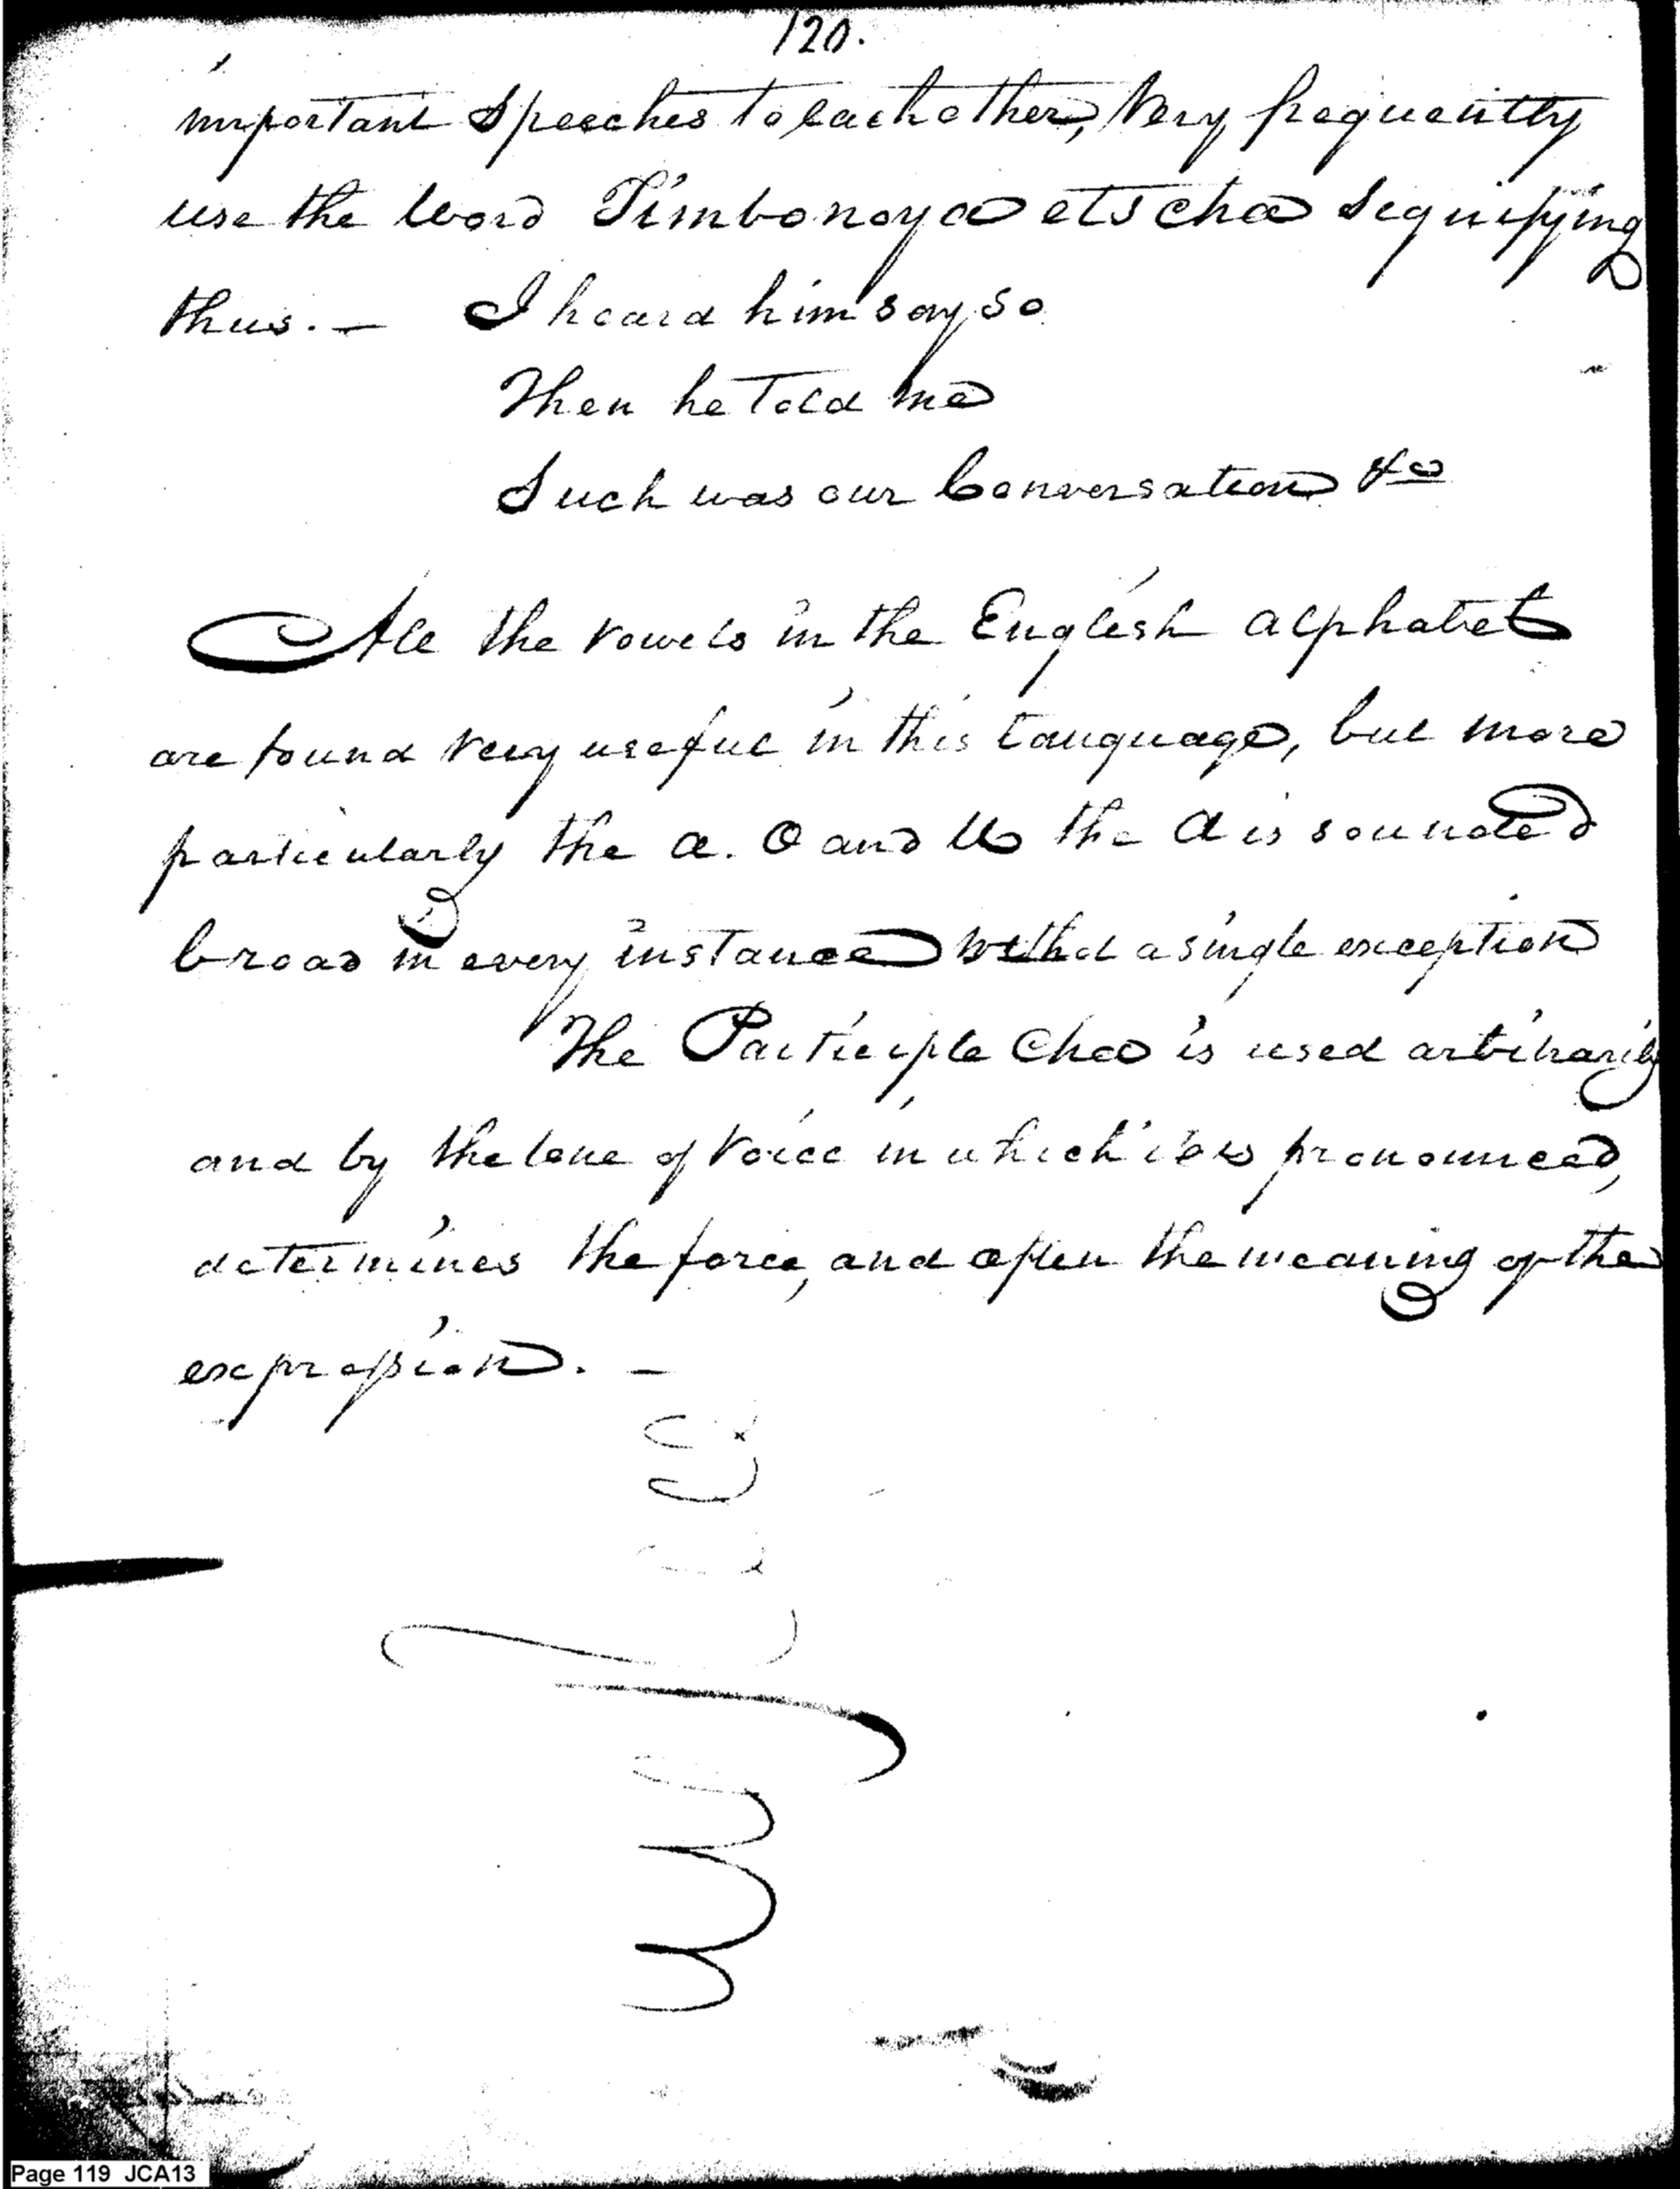 120.
important Speeches to each other, Very frequently
use the Word Timbonoya etscha Signifying
thus. — I heard him say so
Then he Told me
Such was our Conversation &c
All the vowels in the English alphabet
are found very useful in this language, but more
particularly the a. O and U the a is sounded
broad in every instance a single exception
The Participle Cha is used arbitrarily
and by the tone of voice in which it is pronounced,
determines the force, and often the meaning of the
expression. —
Page 119 JCA13